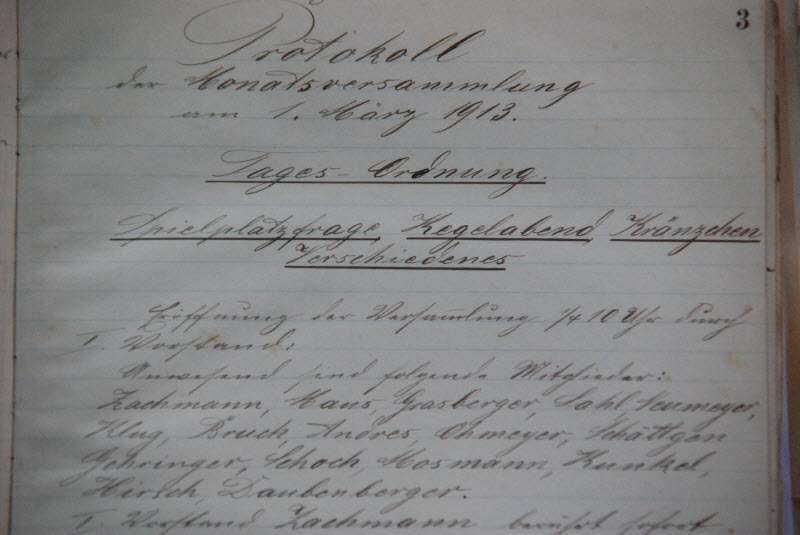 3
Protokoll
der Monatsversammlung
am 1. März 1913.
Tages-Ordnung.
Spielplatzfrage, Kegelabend, Kränzchen
Verschiedenes
Eröffnung der Versamlung 1/4 10 Uhr durch
I. Vorstand:
Anwesend sind folgende Mitglieder:
Zachmann, Haus, Grasberger, Sahl, Neumeyer,
Klug, Bruch, Andres, Ohmeyer, Schättgen
Gehringer, Schoch, Mosmann, Kunkel,
Hirsch, Daubenberger.
I. Vorstand Zachmann berührt sofort